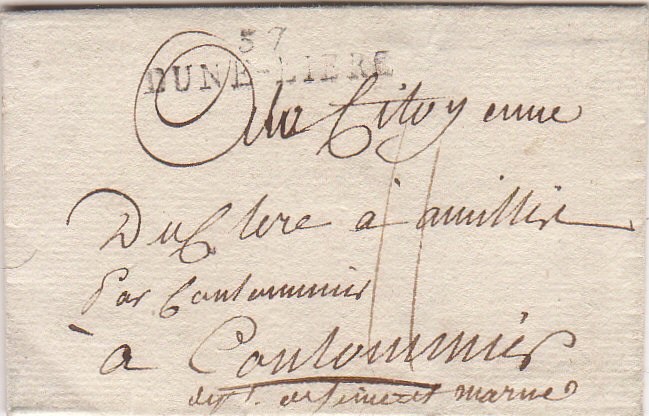 57
DUNE-LIBRE
A la Citoyenne
Du Clere à amillis
Par Coulommier
à Coulommier
dept. de seine et marne
11